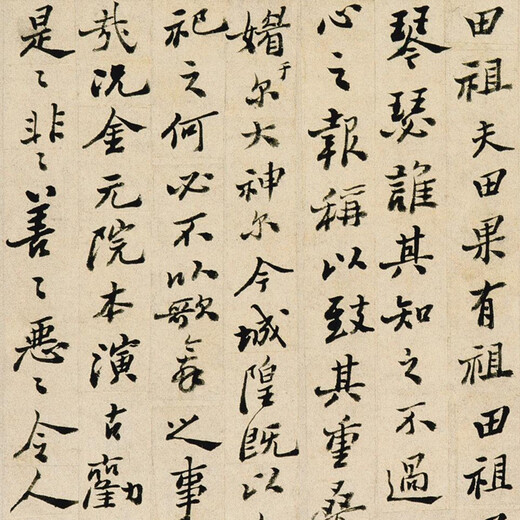 田祖夫田果有祖田祖
琴瑟誰其知之不過
心之報稱以致其重
媚于尔大神尔今城隍既以
祀之何必不以歌舞之事
哉况金元院本演古勸
是〻非〻善〻惡〻令人